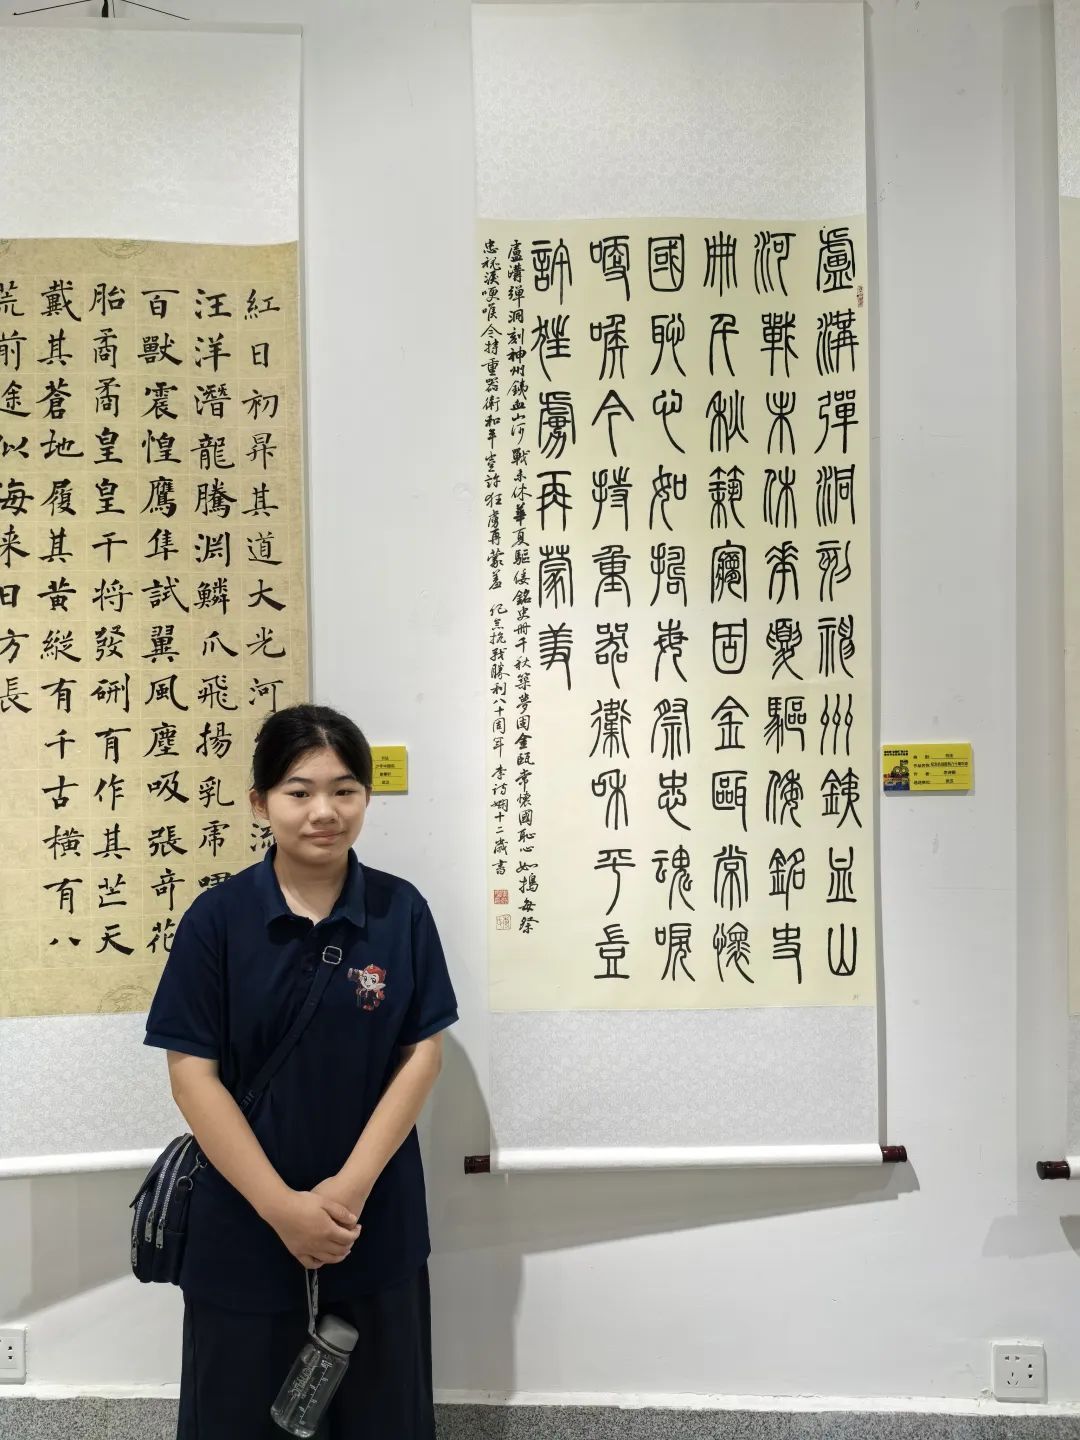 盧溝彈洞刻神州銕血山
河戰未休華夏驅倭銘史
冊千秋築夢固金甌常懷
國恥心如搗每祭忠魂淚
哽喉今持重器衛和平豈
許狂虜再蒙羞
盧溝彈洞刻神州銕血山河戰未休華夏驅倭銘史冊千秋築夢固金甌常懷國恥心如搗每祭
忠魂淚哽喉今持重器衛和平豈許狂虜再蒙羞 紀念抗戰勝利八十周年 李詩嫻十二歲書
紅日初昇其道大光河流
汪洋潛龍騰淵鱗爪飛揚乳虎嘯
百獸震惶鷹隼試翼風塵吸張奇花
胎矞矞皇皇干將發硎有作其芒天
戴其蒼地履其黃縱有千古橫有八
荒前途似海来日方長